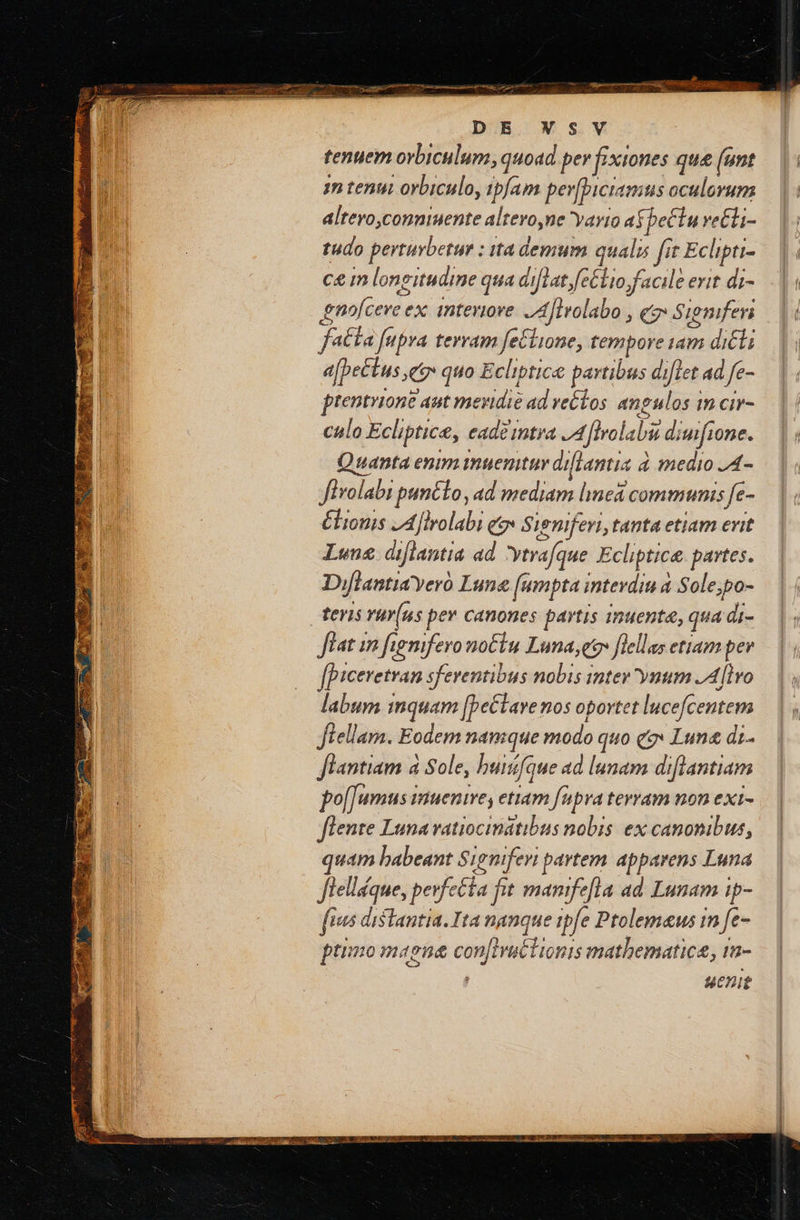 DE VSV
tenuem orbiculum, quoad per fixiones quæ ſunt
in tenui orbiculo, ipſam perſpiciamus oculorum
altero, conniuente altero, ne vario aſpectu recti-
tudo perturbetur : ita demum qualis ſit Eclipti-
cæ in longitudine qua diſtat, ſectio, facilè erit di-
gnoſcere ex interiore Aſtrolabo, & Signiferi
facta ſupra terram ſectione, tempore iam dicti
aſpectus, & quo Eclipticæ partibus diſtet ad ſe-
ptentrionē aut meridiē ad rectos angulos in cir-
culo Eclipticæ, eadē intra Aſtrolabū diuiſione.
Quanta enim inuenitur diſtantia à medio A-
ſtrolabi puncto, ad mediam lineā communis ſe-
ctionis Aſtrolabi & Signiferi, tanta etiam erit
Lunæ diſtantia ad vtraſque Eclipticæ partes.
Diſtantia verò Lunæ ſumpta interdiu à Sole, po-
teris rurſus per canones partis inuentæ, qua di-
ſtat in ſignifero noctu Luna, & ſtellas etiam per
ſpiceretran sferentibus nobis inter vnum Aſtro
labum inquam ſpectare nos oportet luceſcentem
ſtellam. Eodem namque modo quo & Lunæ di-
ſtantiam à Sole, huiúſque ad lunam diſtantiam
poſſumus inuenire, etiam ſupra terram non exi-
ſtente Luna ratiocinātibus nobis ex canonibus,
quam habeant Signiferi partem apparens Luna
ſtelláque, perfecta ſit manifeſta ad Lunam ip-
ſius diſtantia. Ita nanque ipſe Ptolemæus in ſe-
ptimo magnæ conſtructionis mathematicæ, in-
uenit